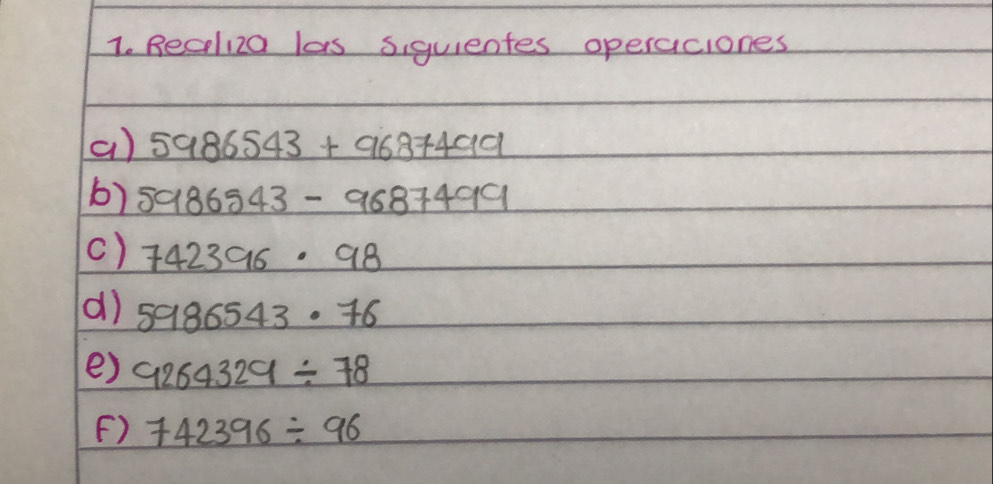 1. Realiza las siguientes operaciones
a) 5986543 + 9687499
b) 5986543 - 9687499
c) 742396 · 98
d) 5986543 · 76
e) 9264329 ÷ 78
F) 742396 ÷ 96